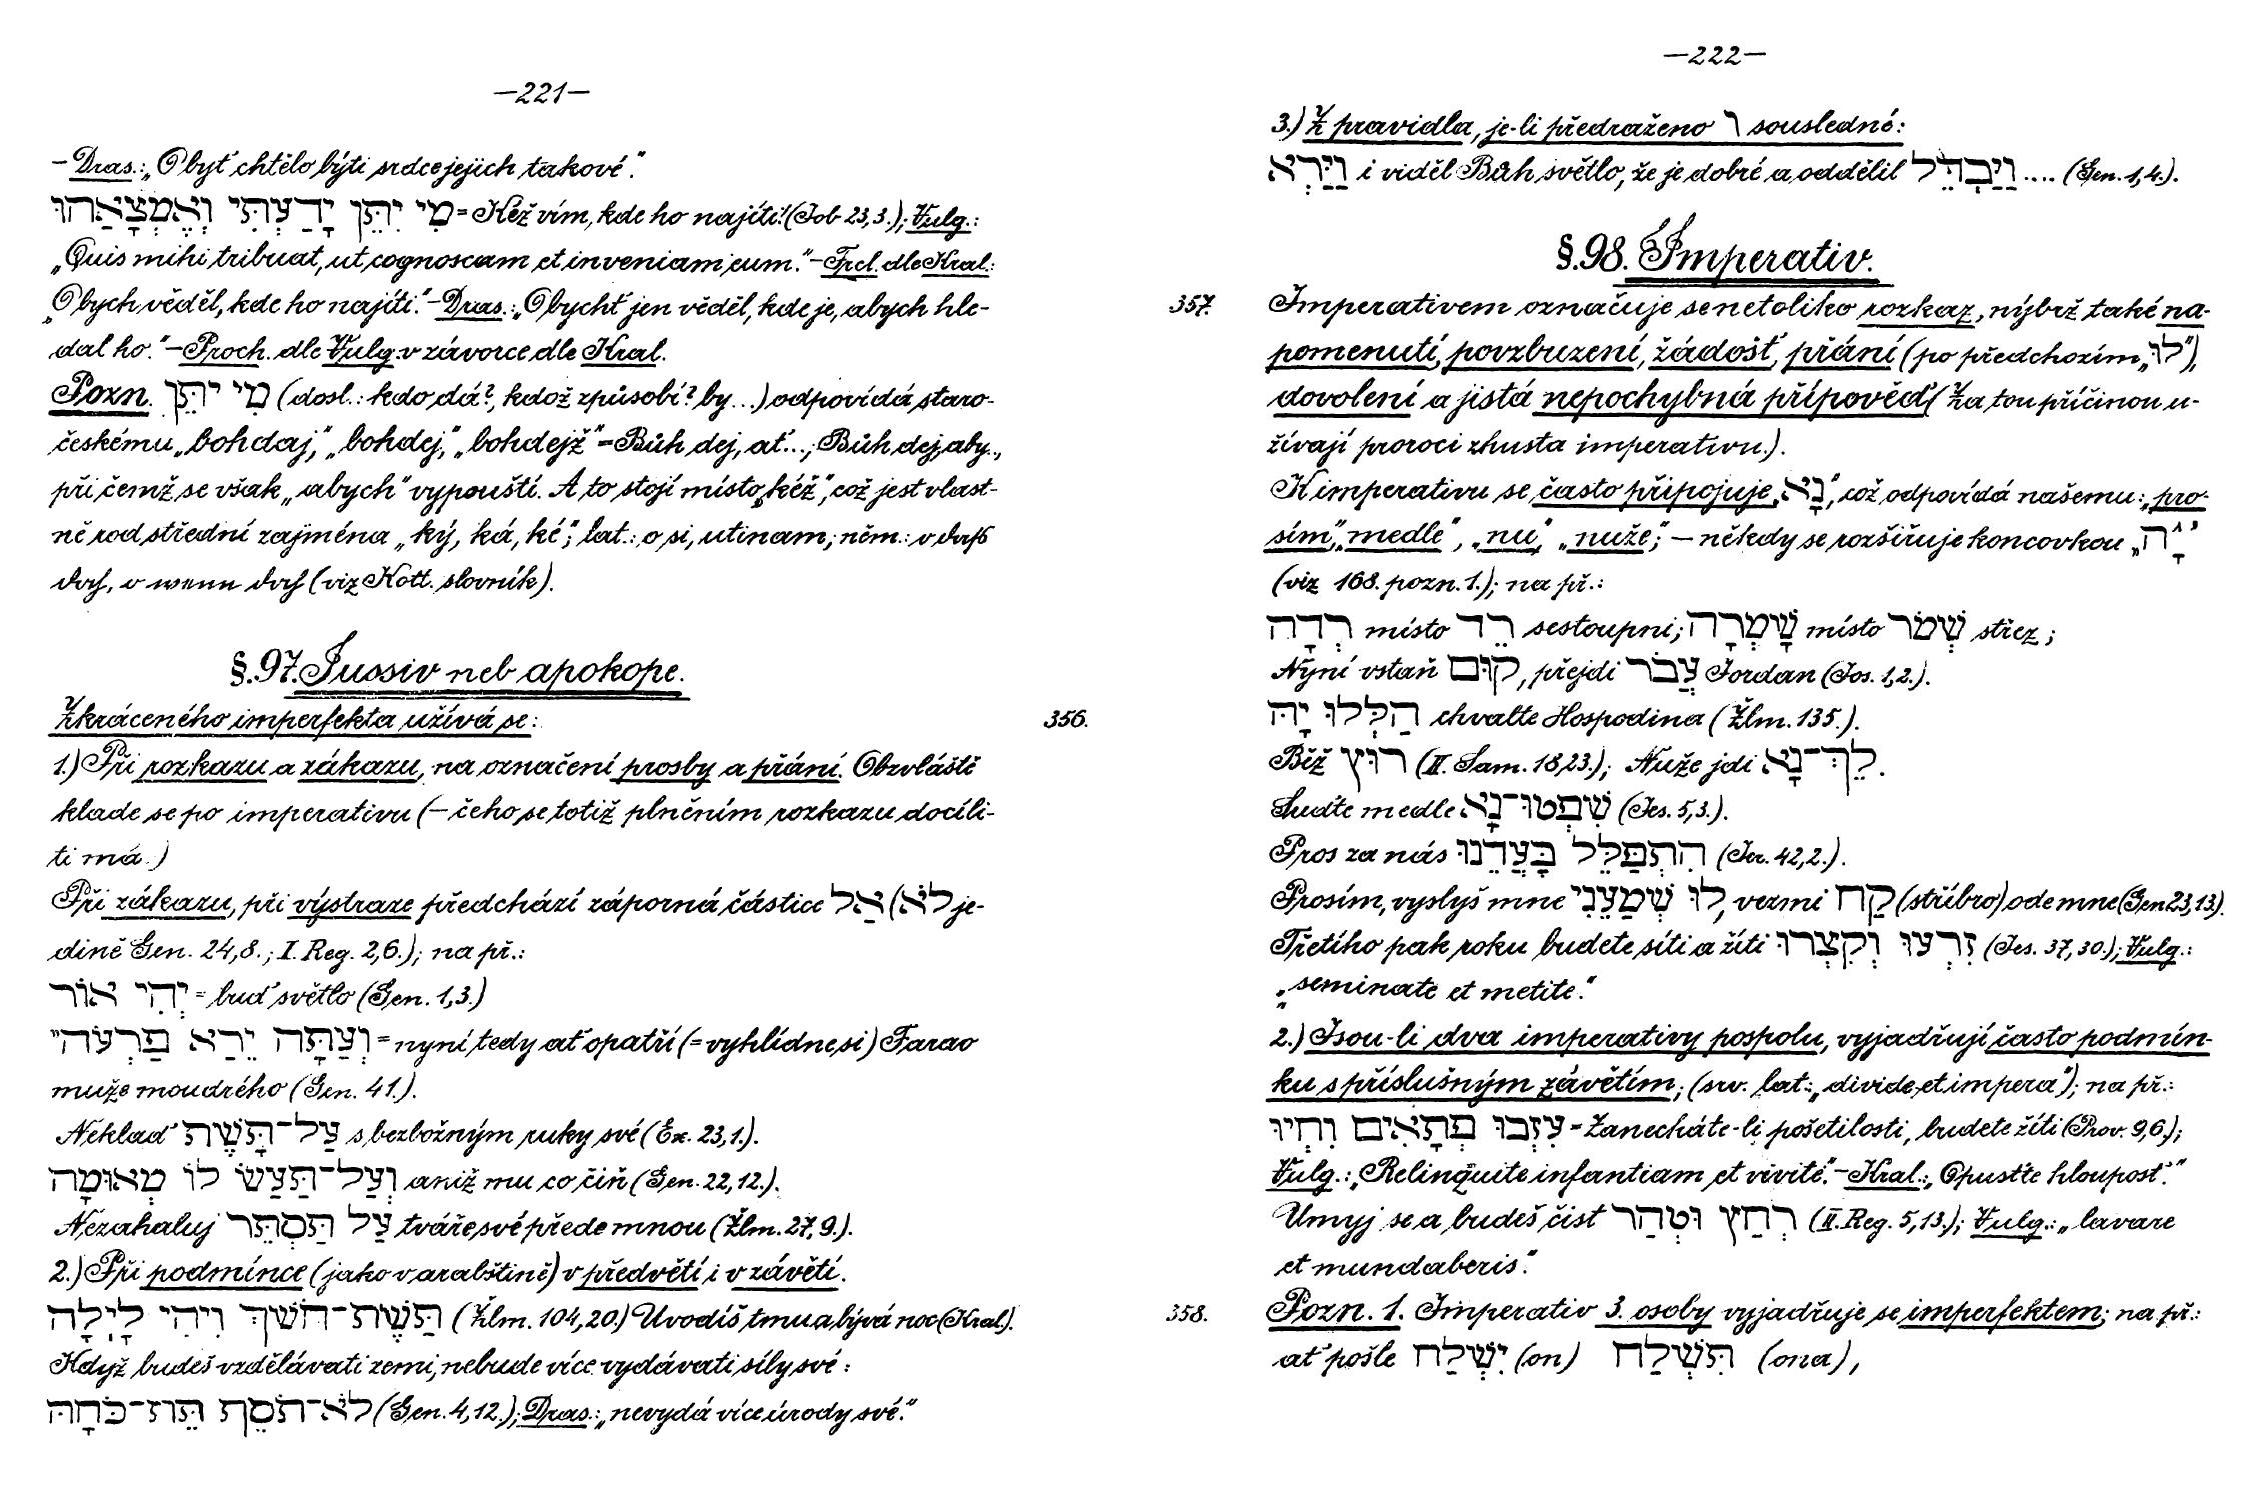 —221—
– Dras.: „Ó byť chtělo býti srdce jejich takové“.
מִי יִתֵּן יָדַעְתִּי וְאֶמְצָאֵהוּ = Kéž vím, kde ho najíti! (Job 23,3.); Vulg.:
„Quis mihi tribuat, ut cognoscam et inveniam eum.“ – Frcl. dle Kral.:
„Ó bych věděl, kde ho najíti.“ – Dras.: „Ó bychť jen věděl, kde je, abych hle-
dal ho.“ – Proch. dle Vulg. v závorce dle Kral.
Pozn. מִי יִתֵּן (dosl.: kdo dá?, kdož způsobí? by ...) odpovídá staro-
českému „bohdaj,“ „bohdej,“ „bohdejž“ = Bůh dej, ať...; Bůh dej, aby..,
při čemž se však „abych“ vypouští. A to stojí místo „kéž“, což jest vlast-
ně rod střední zajména „ký, ká, ké“; lat.: o si, utinam; něm.: o daß
doch, o wenn doch (viz Kott. slovník).
§. 97. Jussiv neb apokope.
Zkráceného imperfekta užívá se: 356.
1.) Při rozkazu a zákazu, na označení prosby a přání. Obzvláště
klade se po imperativu (– čeho se totiž plněním rozkazu docíli-
ti má.)
Při zákazu, při výstraze předchází záporná částice אַל (לֹא je-
dině Gen. 24,8.; I. Reg. 2,6.); na př.:
יְהִי אוֹר = buď světlo (Gen. 1,3.)
וְעַתָּה יֵרֵא פַרְעֹה” = nyní tedy ať opatří (= vyhlídne si) Farao
muže moudrého (Gen. 41.).
Neklaď עַל־תָּשֶׁת s bezbožným ruky své (Ex. 23,1.).
וְעַל־תַּעַשׂ לוֹ מְאוּמָה aniž mu co čiň (Gen. 22,12.).
Nezahaluj עַל תַּסְתֵּר tváře své přede mnou (Žlm. 27,9.).
2.) Při podmínce (jako v arabštině) v předvětí i v závětí.
תָּשֶׁת־חֹשֶׁךְ וִיהִי לָיְלָה (Žlm. 104,20.) Uvodíš tmu a bývá noc (Kral.).
Když budeš vzdělávati zemi, nebude více vydávati síly své:
לֹא־תֹסֵף תֵּת־כֹּחָהּ (Gen. 4,12.); Dras.: „nevydá více úrody své.“
—222—
3.) Z pravidla, je-li předraženo ו sousledné:
וַיַּרְא i viděl Bůh světlo, že je dobré a oddělil וַיַּבְדֵּל .... (Gen. 1,4.).
§. 98. Imperativ.
357. Imperativem označuje se netoliko rozkaz, nýbrž také na-
pomenutí, povzbuzení, žádosť, přání (po předchozím „לוּ“),
dovolení a jistá nepochybná přípověď (Za tou příčinou u-
žívají proroci zhusta imperativu.).
K imperativu se často připojuje „נָא“, což odpovídá našemu: „pro-
sím“, „medle“, „nu“, „nuže“; – někdy se rozšiřuje koncovkou „ָה“
(viz 168. pozn. 1.); na př.:
רְדָה místo רֵד sestoupni; שָׁמְרָה místo שְׁמֹר střez;
Nyní vstaň קוּם, přejdi עֲבֹר Jordan (Jos. 1,2.).
הַלְלוּ יָהּ chvalte Hospodina (Žlm. 135.).
Běž רוּץ (II. Sam. 18,23.); Nuže jdi לֵךְ־נָא.
Suďte medle שִׁפְטוּ־נָא (Jes. 5,3.).
Pros za nás הִתְפַּלֵּל בַּעֲדֵנוּ (Jer. 42,2.).
Prosím, vyslyš mne לוּ שְׁמָעֵנִי, vezmi קַח (stříbro) ode mne (Gen 23,13).
Třetího pak roku budete síti a žíti זִרְעוּ וְקִצְרוּ (Jes. 37,30.); Vulg.:
„seminate et metite.“
2.) Jsou-li dva imperativy pospolu, vyjadřují často podmín-
ku s příslušným závětím; (srv. lat.: „divide et impera“); na př.:
עִזְבוּ פְתָאיִם וִחְיוּ = Zanecháte-li pošetilosti, budete žíti (Prov. 9,6.);
Vulg.: „Relinquite infantiam et vivite“. – Kral.: „Opusťte hlouposť.“
Umyj se a budeš čist רְחַץ וּטְהַר (II. Reg. 5,13.); Vulg.: „lavare
et mundaberis“.
358. Pozn. 1. Imperativ 3. osoby vyjadřuje se imperfektem; na př.:
ať pošle יִשְׁלַח (on) תִּשְׁלַח (ona),